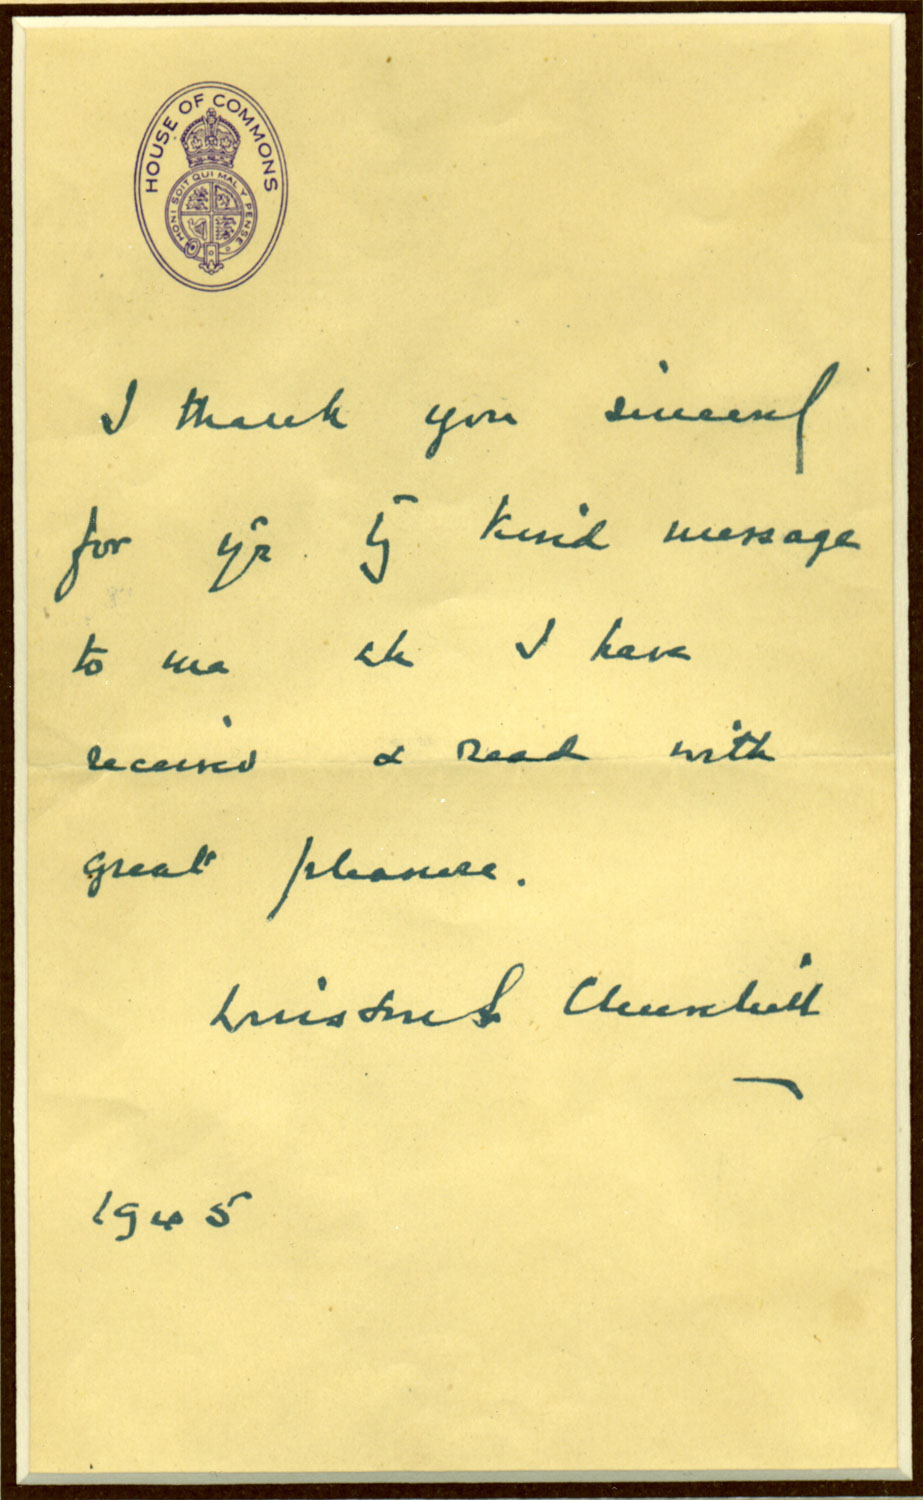 HOUSE OF COMMONS
HONI SOIT QUI MAL Y PENSE
I thank you sincerely
for yr vy kind message
to me wh I have
received & read with
great pleasure.
Winston S Churchill
1945